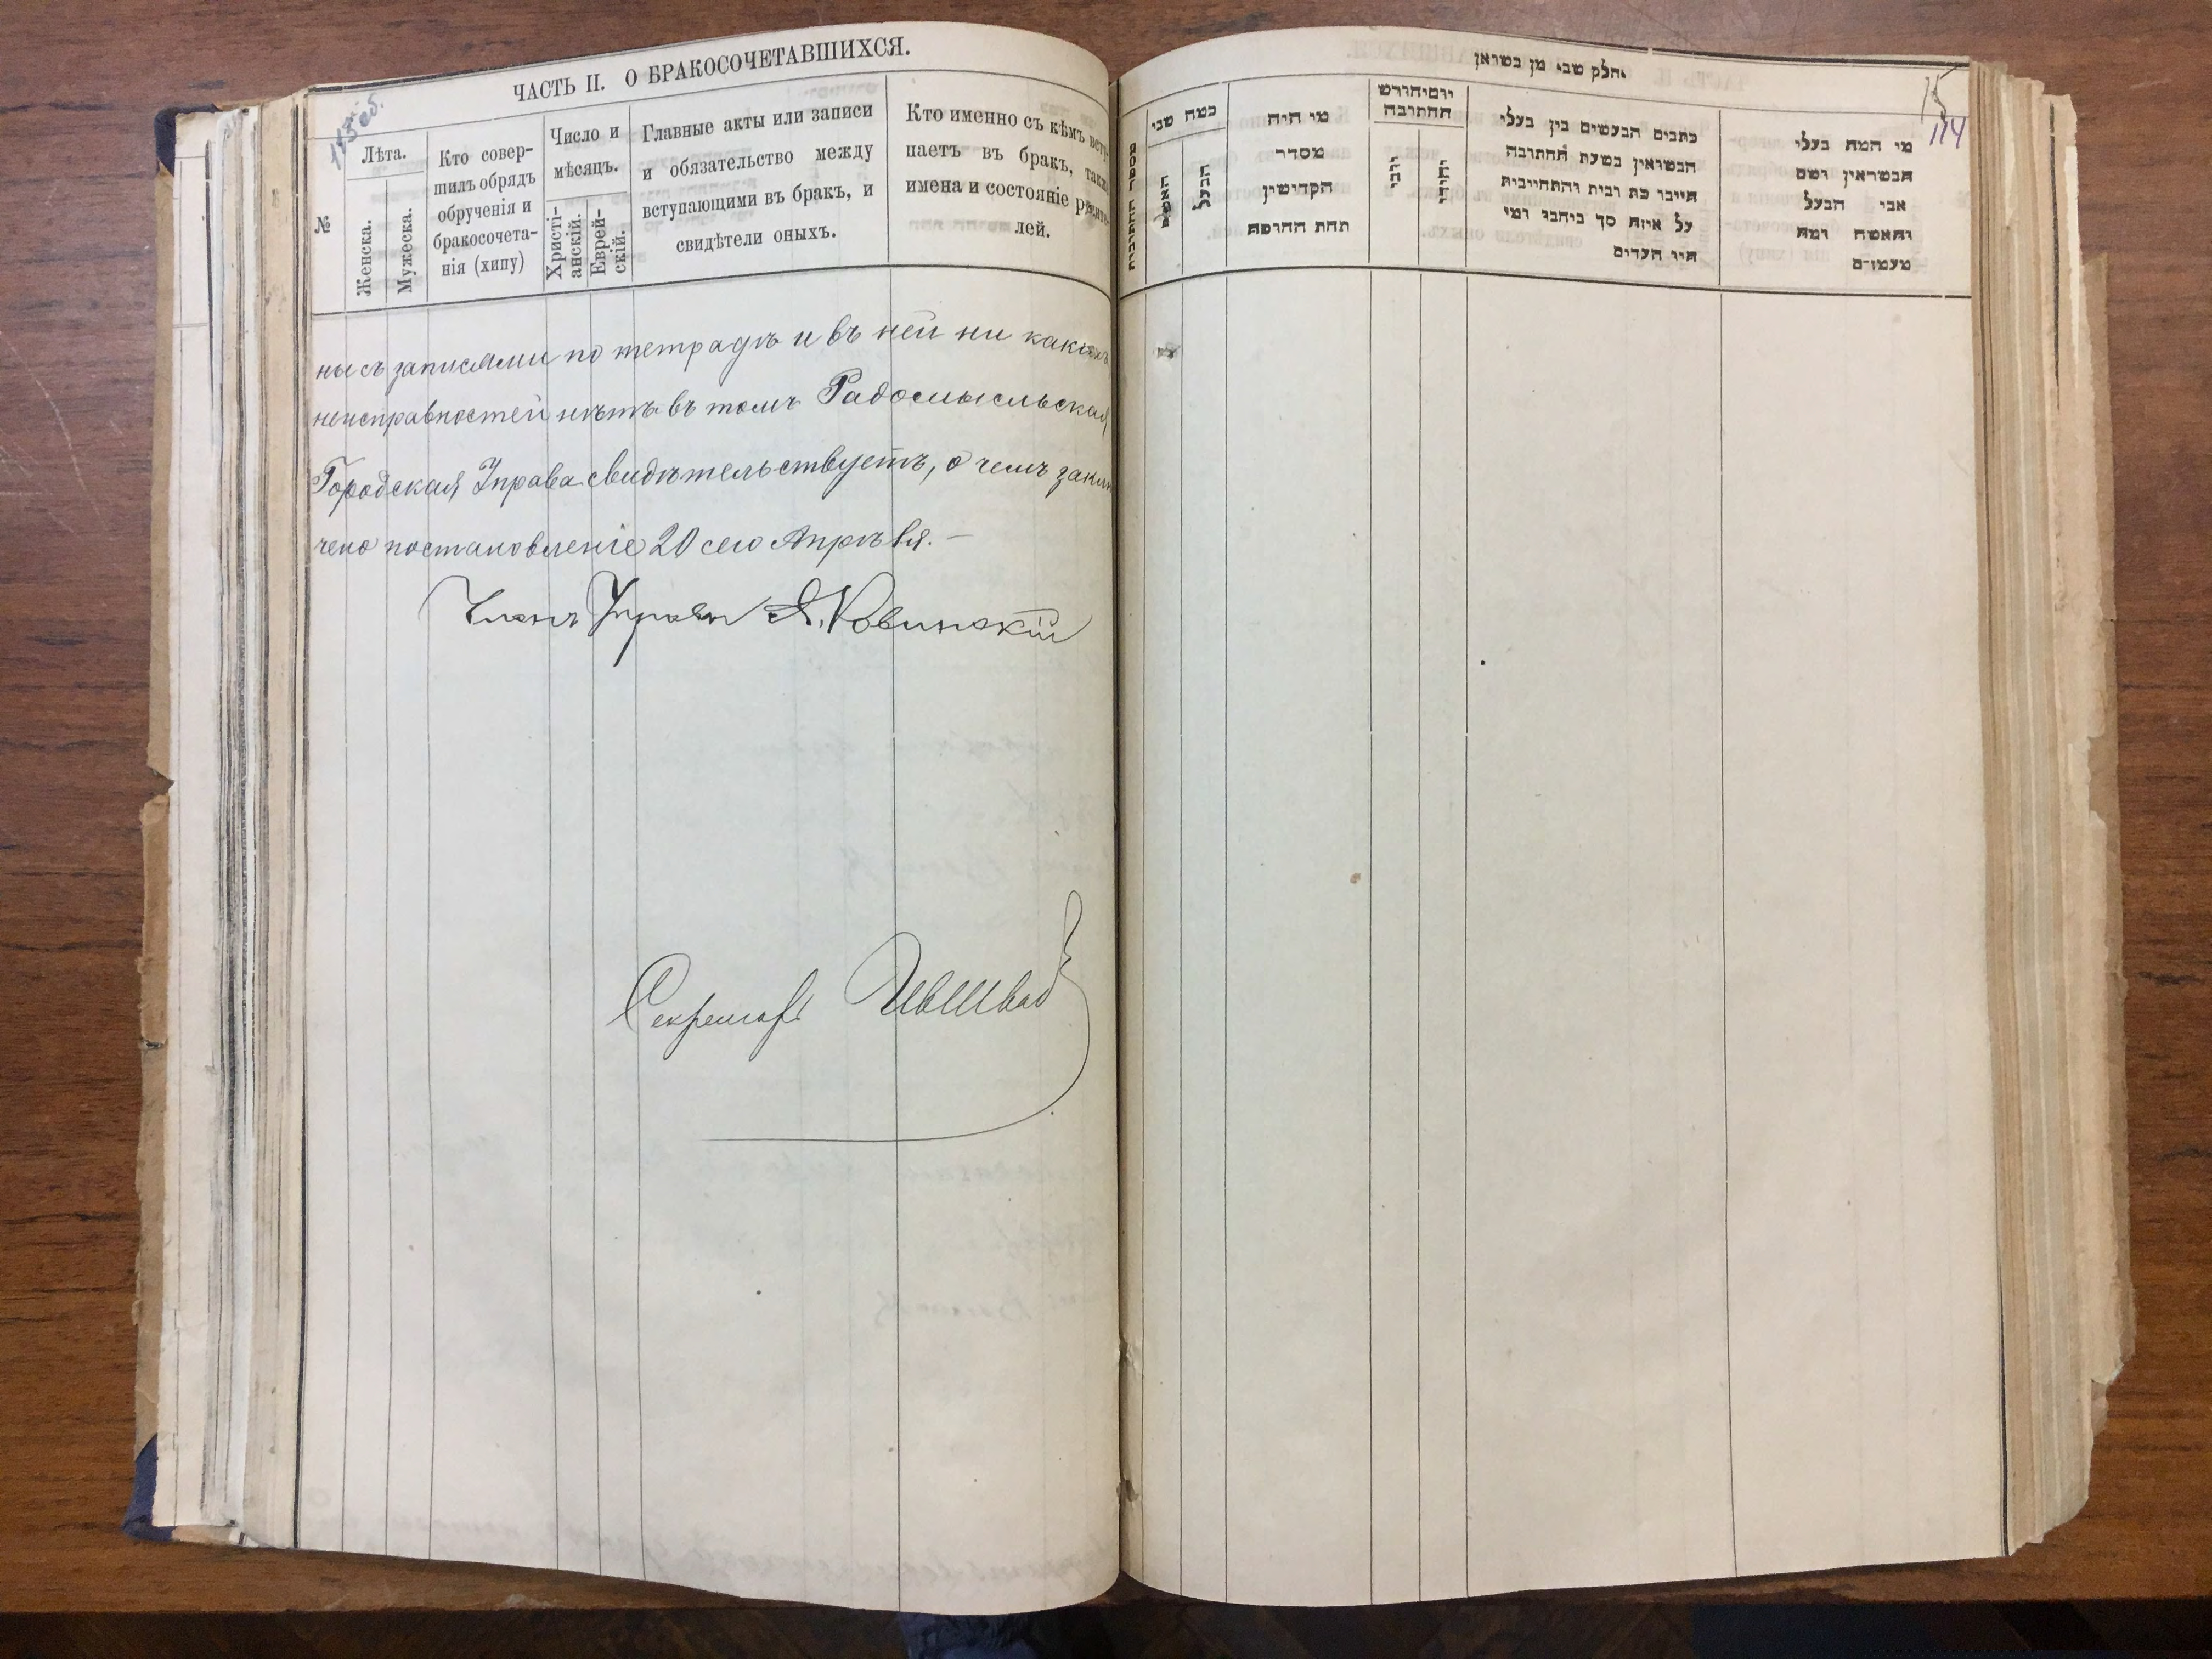 ЧАСТЬ II. О БРАКОСОЧЕТАВШИХСЯ.
113 об.
№
Лѣта.
Женска.
Мужеска.
Кто совер-
шилъ обрядъ
обрученія и
бракосочета-
нія (хипу)
Число и
мѣсяцъ.
Христі-
анскій.
Еврей-
скій.
Главные акты или записи
и обязательство между
вступающими въ бракъ, и
свидѣтели оныхъ.
Кто именно съ кѣмъ всту-
паетъ въ бракъ, также
имена и состояніе родите-
лей.
ны съ записями по тетрадѣ и въ ней ни какихъ
неисправностей нѣтъ въ томъ Радомысльская
Городская Управа свидѣтельствуетъ, о чемъ заклю
чено постановленіе 20 сего Апрѣля. —
Членъ Управы
Секретарь
וחלק שני מן נשואן
15
114
מספר החתונות
כמה שני
האשה
הבעל
מי היה
מסדר
הקדושין
תחת החופה
יום וחודש
החתונה
נוצרי
יהודי
כתבים הנעשים בין בעלי
הנשואין בשעת החתונה
חייבו כת וכית והתחייבות
על איזה סך ביניהם ומי
היו העדים
מי המה בעלי
הנשואין ושם
אבי הבעל
והאשה ומה
מעמדם